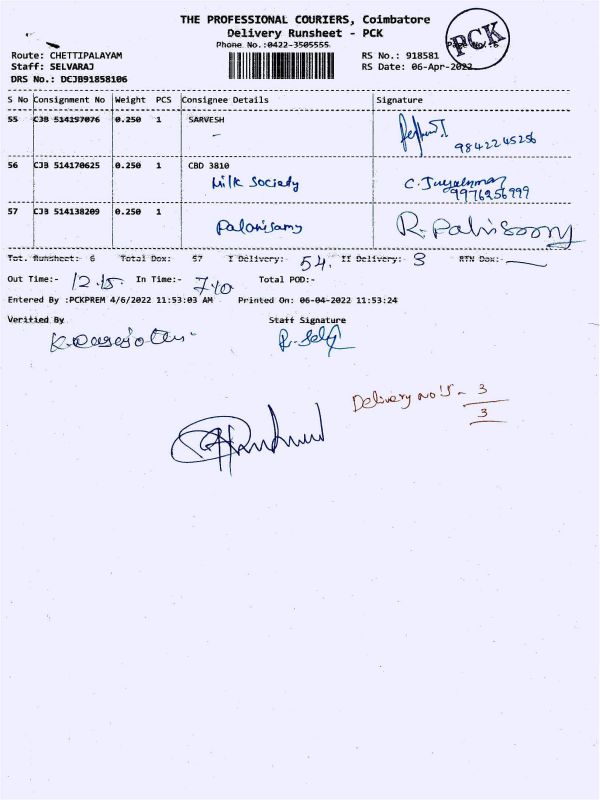 THE PROFESSIONAL COURIERS, Coimbatore
Delivery Runsheet - PCK
Phone No.:0422-3505555
PCK
Page No.:6
Route: CHETTIPALAYAM
RS No.: 918581
Staff: SELVARAJ
RS Date: 06-Apr-2022
DRS No.: DCJB91858106
S No Consignment No Weight PCS Consignee Details Signature
55 CJB 514197076 0.250 1 SARVESH
9842245256
56 CJB 514170625 0.250 1 CBD 3810
Milk Society
9976256999
57 CJB 514138209 0.250 1
Palanisamy
Tot. Runsheet: 6 Total Dox: 57 I Delivery: 54. II Delivery: 3 RTN Dox:-
Out Time:- 12.15. In Time:- 7.40 Total POD:-
Entered By :PCKPREM 4/6/2022 11:53:03 AM Printed On: 06-04-2022 11:53:24
Verified By Staff Signature
Delivery no's - 3
3